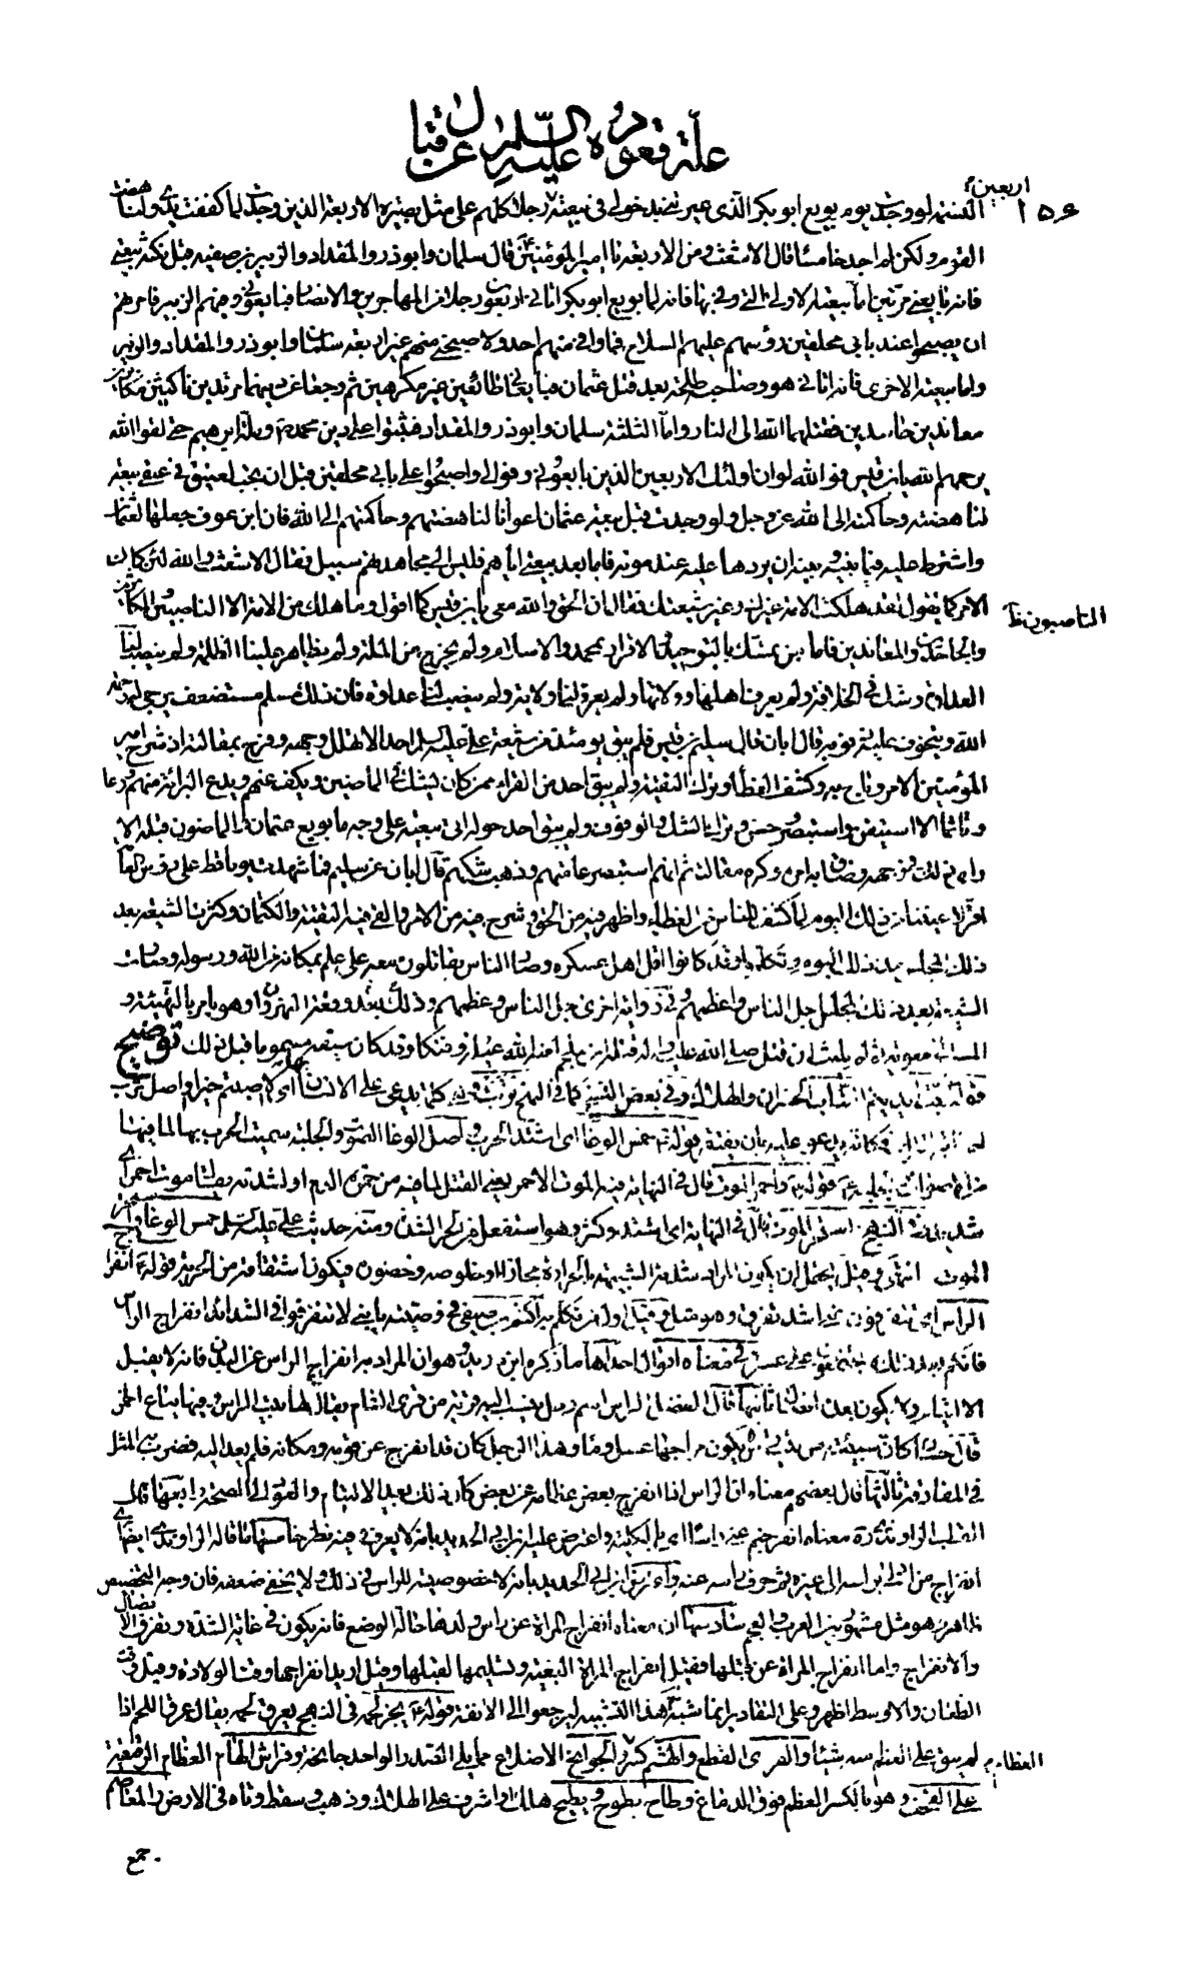 علّة قعوده عليه السّلم عن قتال
اربعين
١٥٤
النسمة لو وجدت يوم بويع ابو بكر الّذى عيرتنى بدخولى فى بيعته رجلا كلهم على مثل بصيرة الاربعة الذين وجدت لما كففت يدى ولناهضت
القوم ولكن لم اجد خامسا قال الاشعث ومن الاربعة يا امير المؤمنين قال سلمان وابوذر والمقداد والزبير بن صفية قبل نكثه بيعتى
فانه بايعنى مرتين اما بيعته الاولى التى وفى بها فانه لما بويع ابو بكر اتانى اربعون رجلا من المهاجرين والانصار فبايعونى وفيهم الزبير فامرتهم
ان يصبحوا عند بابى محلقين رؤسهم عليهم السلاح فما وافى منهم احد ولا صبحنى منهم غير اربعة سلمان وابوذر والمقداد والزبير
واما بيعته الاخرى فانه اتانى هو وصاحبه طلحة بعد قتل عثمان فبايعانى طائعين غير مكرهين ثم رجعا عن دينهما مرتدين ناكثين مكابرين
معاندين حاسدين فقتلهما الله الى النار واما الثلثة سلمان وابوذر والمقداد فثبتوا على دين محمد وملة ابرهيم حتى لقوا الله
يرحمهم الله يا بن قيس فو الله لو ان اولئك الاربعين الذين بايعونى وفوا لى واصبحوا على بابى محلقين قبل ان يجب لعتيق فى عنقى بيعته
لناهضته وحاكمته الى الله عز وجل ولو وجدت قبل بيعة عثمان اعوانا لناهضتهم وحاكمتهم الى الله فان ابن عوف جعلها لعثمان
واشترط عليه فيما بينه وبينه ان يردها عليه عند موته فاما بعد بيعتى اياهم فليس الى مجاهدتهم سبيل فقال الاشعث والله لئن كان
الامر كما تقول لقد هلكت الامة غيرك وغير شيعتك فقال ان الحق والله معى يا بن قيس كما اقول وما هلك من الامة الا الناصبين المكابرين
الناصبون ظ
والجاحدين والمعاندين فاما من تمسك بالتوحيد والاقرار بمحمد والاسلام ولم يخرج من الملة ولم يظاهر علينا الظلمة ولم ينصب لنا
العداوة وشك فى الخلافة ولم يعرف اهلها وولاتها ولم يعرف لنا ولاية ولم ينصب لنا عداوة فان ذلك مسلم مستضعف يرجى له رحمة
الله ويتخوف عليه ذنوبه قال ابان قال سليم بن قيس فلم يبق يومئذ من شيعة على عليه السلم احد الا تهلل وجهه وفرح بمقالته اذ شرح امير
المؤمنين الامر وباح به وكشف الغطاء وترك التقية ولم يبق احد من القراء ممن كان يشك فى الماضين ويكف عنهم ويدع البرائة منهم ورعا
وتاثما الا استيقن واستبصر وحسن وترك الشك والوقوف ولم يبق احد حوله ابى بيعته على وجه ما بويع عثمان والماضون قبله الا
قال ابان عن سليم فما شهدت يوما قط على رؤس العامة
اقر لاعيننا من ذلك اليوم لما كشف للناس من الغطاء واظهر فيه من الحق وشرح فيه من الامر والقى فيه التقية والكتمان وكثرت الشيعة بعد
ذلك المجلس من ذلك اليوم وتكلموا وقد كانوا اقل اهل عسكره وصار الناس يقاتلون معه على علم بمكانه من الله ورسوله وصارت
الشيعة بعد ذلك المجلس جل الناس واعظمهم وفى رواية اخرى جل الناس وعظمهم وذلك بعد وقعة النهروان وهو يامر بالتهيئة و
المسير الى معوية ثم لم يلبث ان قتل صلى الله عليه قتله ابن ملجم لعنه الله غيلة وفتكا وقد كان سيفه مسموما قبل ذلك توضيح
الخسران والهلاك وفى بعض النسخ كما فى النهج تربت كلمة يدعى على الانسان اى لا اصبتم خيرا واصل ترب
قوله حمس الوغا اى اشتد الحرب واصل الوغا الصوت والجلبة سميت الحرب بها لما فيها
قوله واحمر الموت قال فى النهاية فيه الموت الاحمر يعنى القتل لما فيه من حمرة الدم او لشدته يقال موت احمر اى
شديد وفى النهج استحر الموت قال فى النهاية اى اشتد وكثر وهو استفعل من الحر الشدة ومنه حديث على عليه السلم حمس الوغا واستحر
الموت انتهى وقيل يحتمل ان يكون المراد شدته الشبيهة بالحرارة مجازا او خلوصه وحضوره فيكون اشتقاقه من الحرية قوله انفراج
الراس اى تتفرقون عنى اشد تفرق وهو مثل وقيل اول من تكلم به اكثم بن صيفى فى وصيته يا بنى لا تتفرقوا فى الشدائد انفراج الراس
فانكم بعد ذلك لا تجتمعون على عسر وفى معناه اقوال احدها ما ذكره ابن دريد وهو ان المراد به انفراج الراس عن البدن فانه لا يقبل
الالتيام ولا يكون بعده اتصال ثانيها قال المفضل الراس اسم رجل ينسب اليه قرية من قرى الشام يقال لها بيت الراس وفيها يباع الخمر
قال حسان كان سبيئة من بيت راس يكون مزاجها عسل وماء وهذا الرجل كان قد انفرج عن قومه ومكانه فلم يعد اليه فضرب به المثل
فى المفارقة ثالثها قال بعضهم معناه ان الراس اذا انفرج بعض عظامه عن بعض كان ذلك بعيد الالتيام والعود الى الصحة رابعها قال
القطب الراوندى معناه انفرجتم عنى راسا اى بالكلية واعترض عليه ابن ابى الحديد بانه لا يعرف وفيه نظر خامسها ما قاله الراوندى ايضا اى
انفراج من ادنى براسه الى غيره ثم حرف راسه عنه ورده ابن ابى الحديد بانه لا خصوصية للراس فى ذلك ولا يخفى ضعفه فان وجه التخصيص
ظاهر وهو مثل مشهور بين العرب والعجم سادسها ان معناه انفراج المراة عن راس ولدها حالة الوضع فانه يكون فى غاية الشدة وتفرق الاتصال
والانفراج واما انفراج المراة عن قبلها فقيل انفراج المراة البغية وتسليمها لقبلها وقيل اريد انفراجها وقت الولادة وقيل وقت
الطعان والاوسط اظهر وعلى التقادير انما شبه هذا التشبيه ليرجعوا الى الانفة قوله يجز لحمه فى النهج يعرق لحمه يقال عرق اللحم اذا
العظام
لم يبق على العظم منه شيئا والفرى القطع والهشم كسر والجوانح الاضلاع مما يلى الصدر والواحد جانحة وفراش الهام العظام الرقيقة
على القحف وهو بالكسر العظم فوق الدماغ وطاح يطوح ويطيح هلك او اشرف على الهلاك وذهب وسقط وتاه فى الارض والمعاصم
جمع